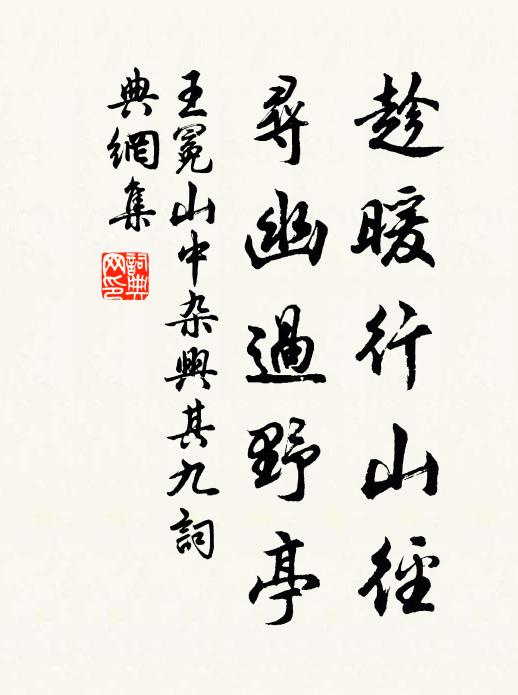 趁暖行山徑
尋幽過野亭
王冕山中杂興其九詞
典網集
詞典
网印